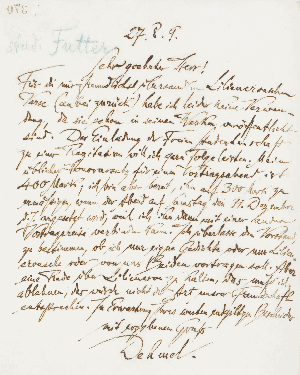 27. 8. 9.
Sehr geehrter Herr!
Für die mir freundlichst
Verse (anbei zurück) habe ich leider keine Verwen-
dung, da sie schon in seinen Werken veröffentlicht
sind. Der Einladung der Freien Studentenschaft
zu einer Rezitation will ich gern folge leisten. Mein
übliches Honorar für einen Vortragsabend ist
400 Mark; ich bin aber bereit, ihn auf 300 Mark zu
ermäßigen, wenn der Abend auf Samstag den 11. Dezember
d. J. angesetzt wird, weil ich ihn dann mit einer andern
Vortragsreise verbinden kann. Ich überlasse dem Vorstand
zu bestimmen, ob ich nur eigne Gedichte oder nur Lilien-
cronsche oder von uns Beiden vortragen soll. Aber
eine Rede über Liliencron zu halten, das muß ich
ablehnen, das würde nicht der Art unsrer Freundschaft
entsprechen. In Erwartung Ihres endgültigen Bescheides
mit ergebenem Gruß
Dehmel.